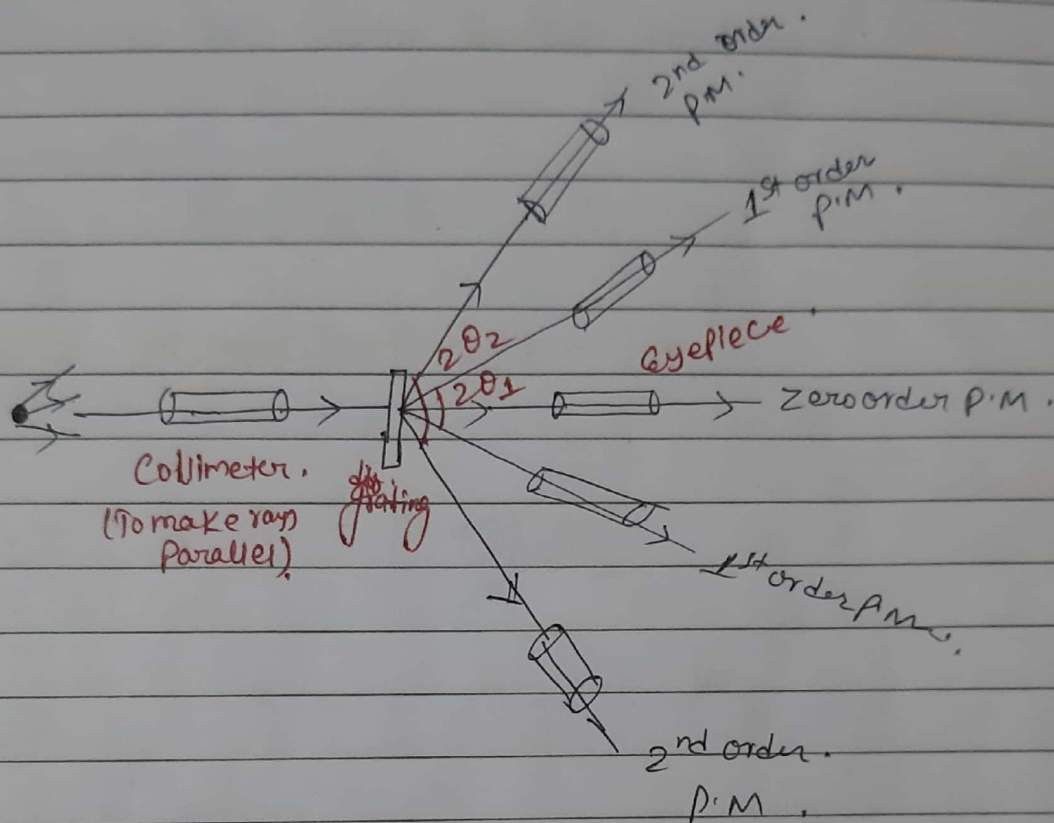 2nd order.
P.M.
1st order
P.M.
2θ2
2θ1
Eyepiece.
Zero order P.M.
Collimeter.
(To make rays
Parallel).
grating
1st order P.M.
2nd order.
P.M.